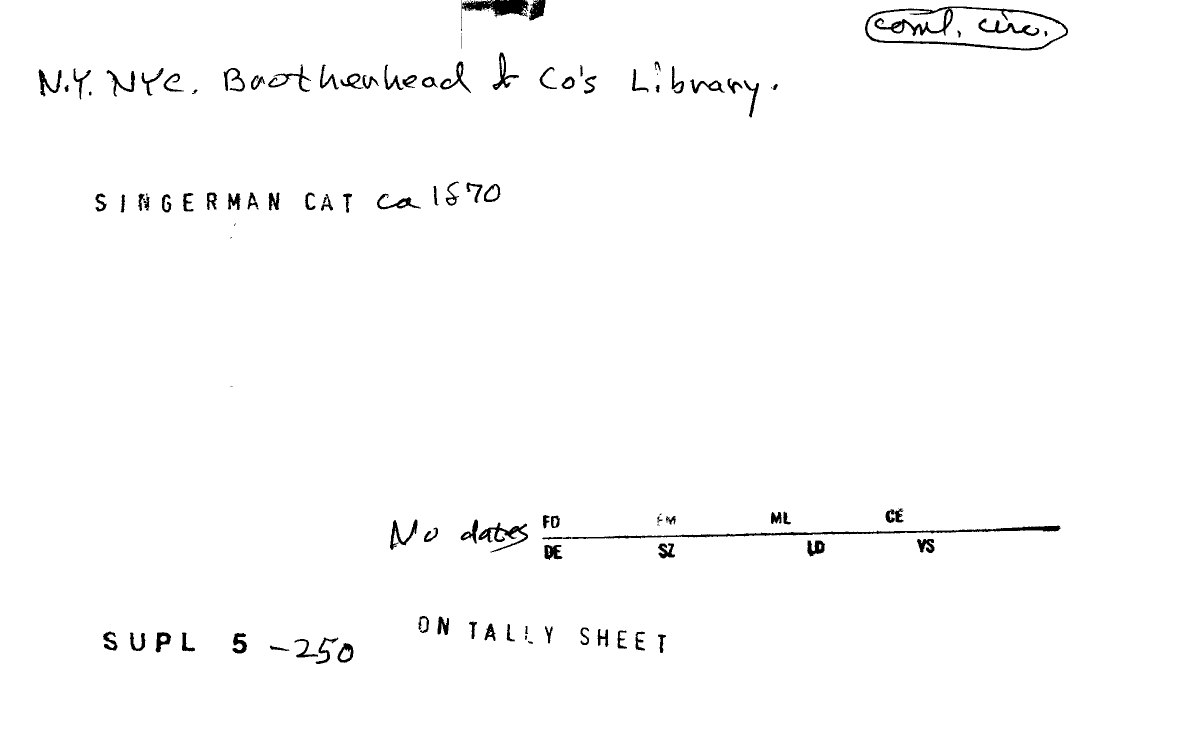 coml. circ.
N.Y. NYC. Brothenhead & Co's Library.
SINGERMAN CAT ca 1870
No dates FD EM ML CE
DE SZ LD VS
SUPL 5 -250 ON TALLY SHEET